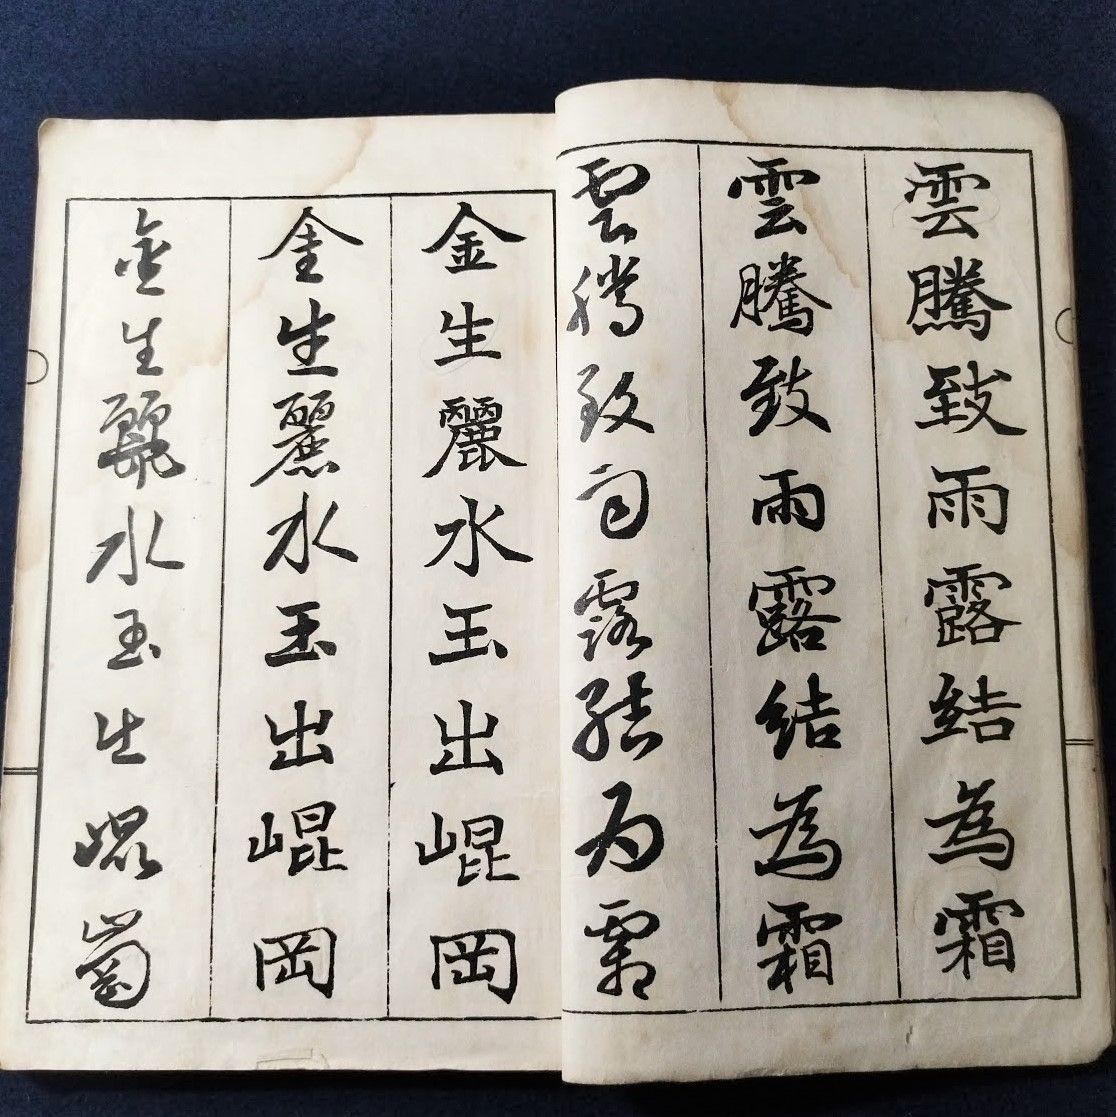 雲騰致雨露結為霜
雲騰致雨露結為霜
雲騰致雨露結為霜
金生麗水玉出崐岡
金生麗水玉出崐岡
金生麗水玉出崐岡